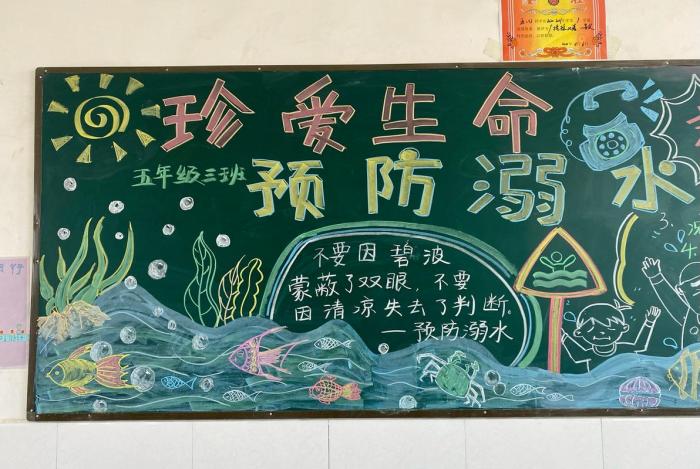 珍爱生命
五年级三班
预防溺水
不要因碧波
蒙蔽了双眼，不要
因清凉失去了判断。
—预防溺水
3.